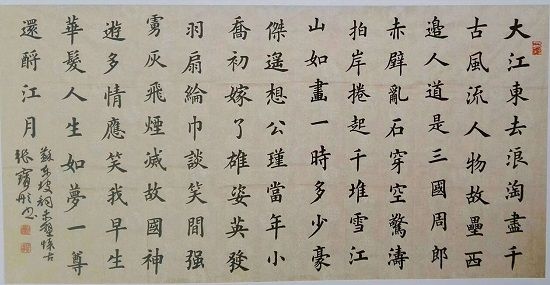 大江東去浪淘盡千
古風流人物故壘西
邊人道是三國周郎
赤壁亂石穿空驚濤
拍岸捲起千堆雪江
山如畫一時多少豪
傑遥想公瑾當年小
喬初嫁了雄姿英發
羽扇綸巾談笑間强
虜灰飛煙滅故國神
遊多情應笑我早生
華髮人生如夢一尊
還酹江月
東坡詞赤壁懷古
張寶彤書